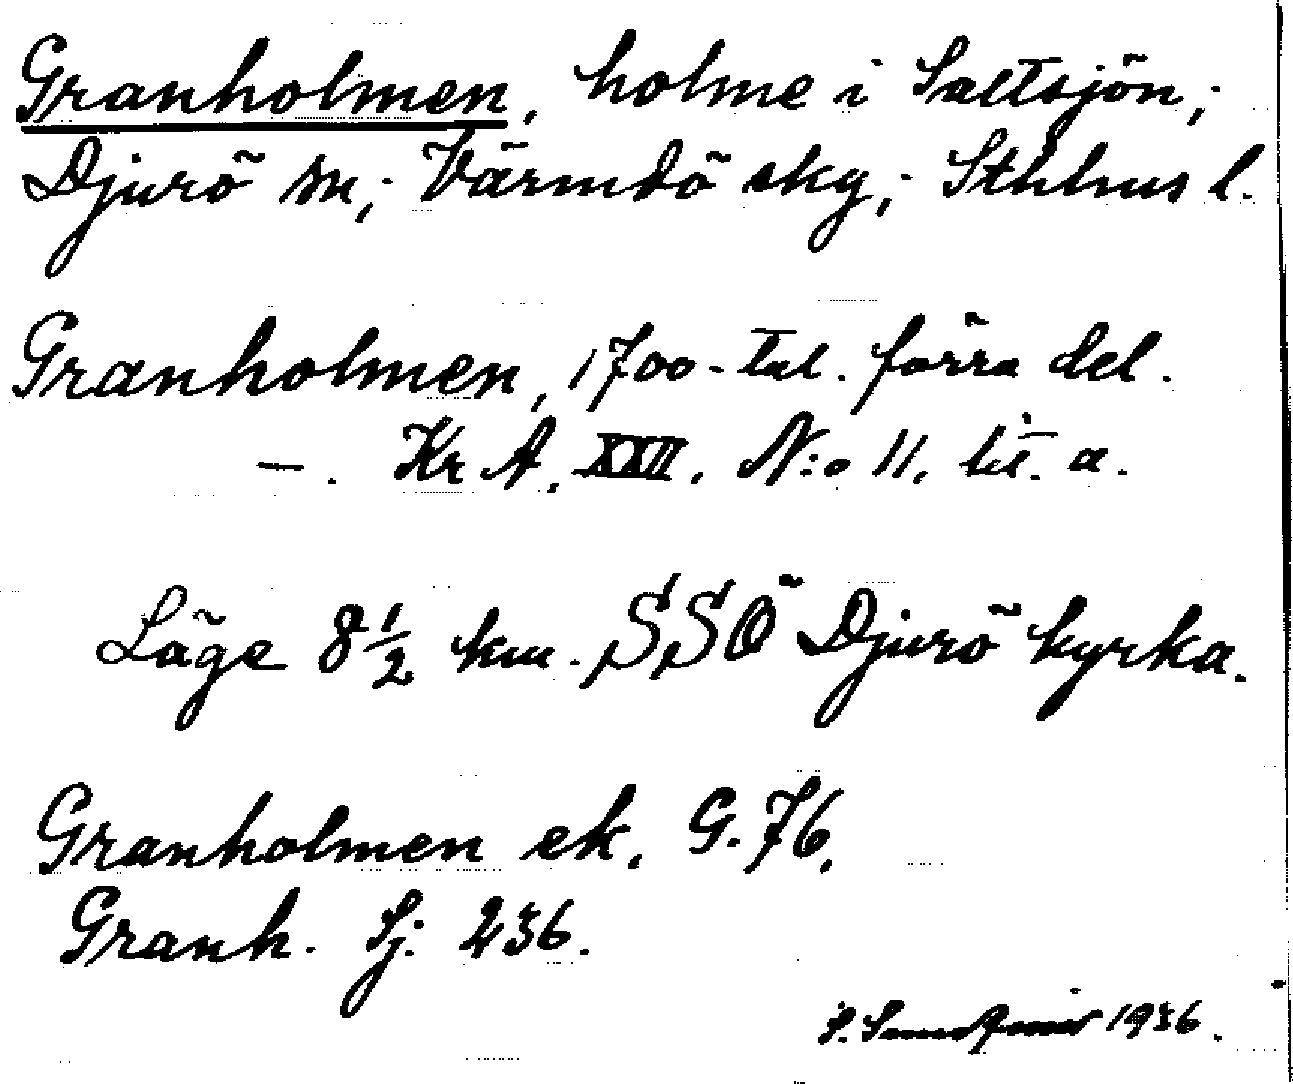 Granholmen, holme i Saltsjön,-
Djurö sn,- Värmdö sky,- Sthlms l.
Granholmen, 1700-tal. förra del.
—. Kr A. XXII. N:o 11. lit. a.
Läge 8 1/2 km. SSÖ Djurö kyrka.
Granholmen ek. G. 76.
Granh. Sj. 236.
1936.